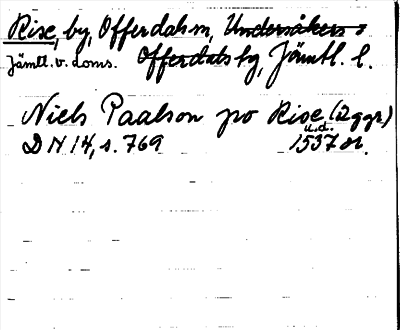 Rise, by, Offerdals sn, Undersåkers o
Jämtl. v. doms. Offerdals tg, Jämtl. l.
Niels Paalson po Rise (2 ggr)
u.d.
DN 14, s. 769 1537 or.